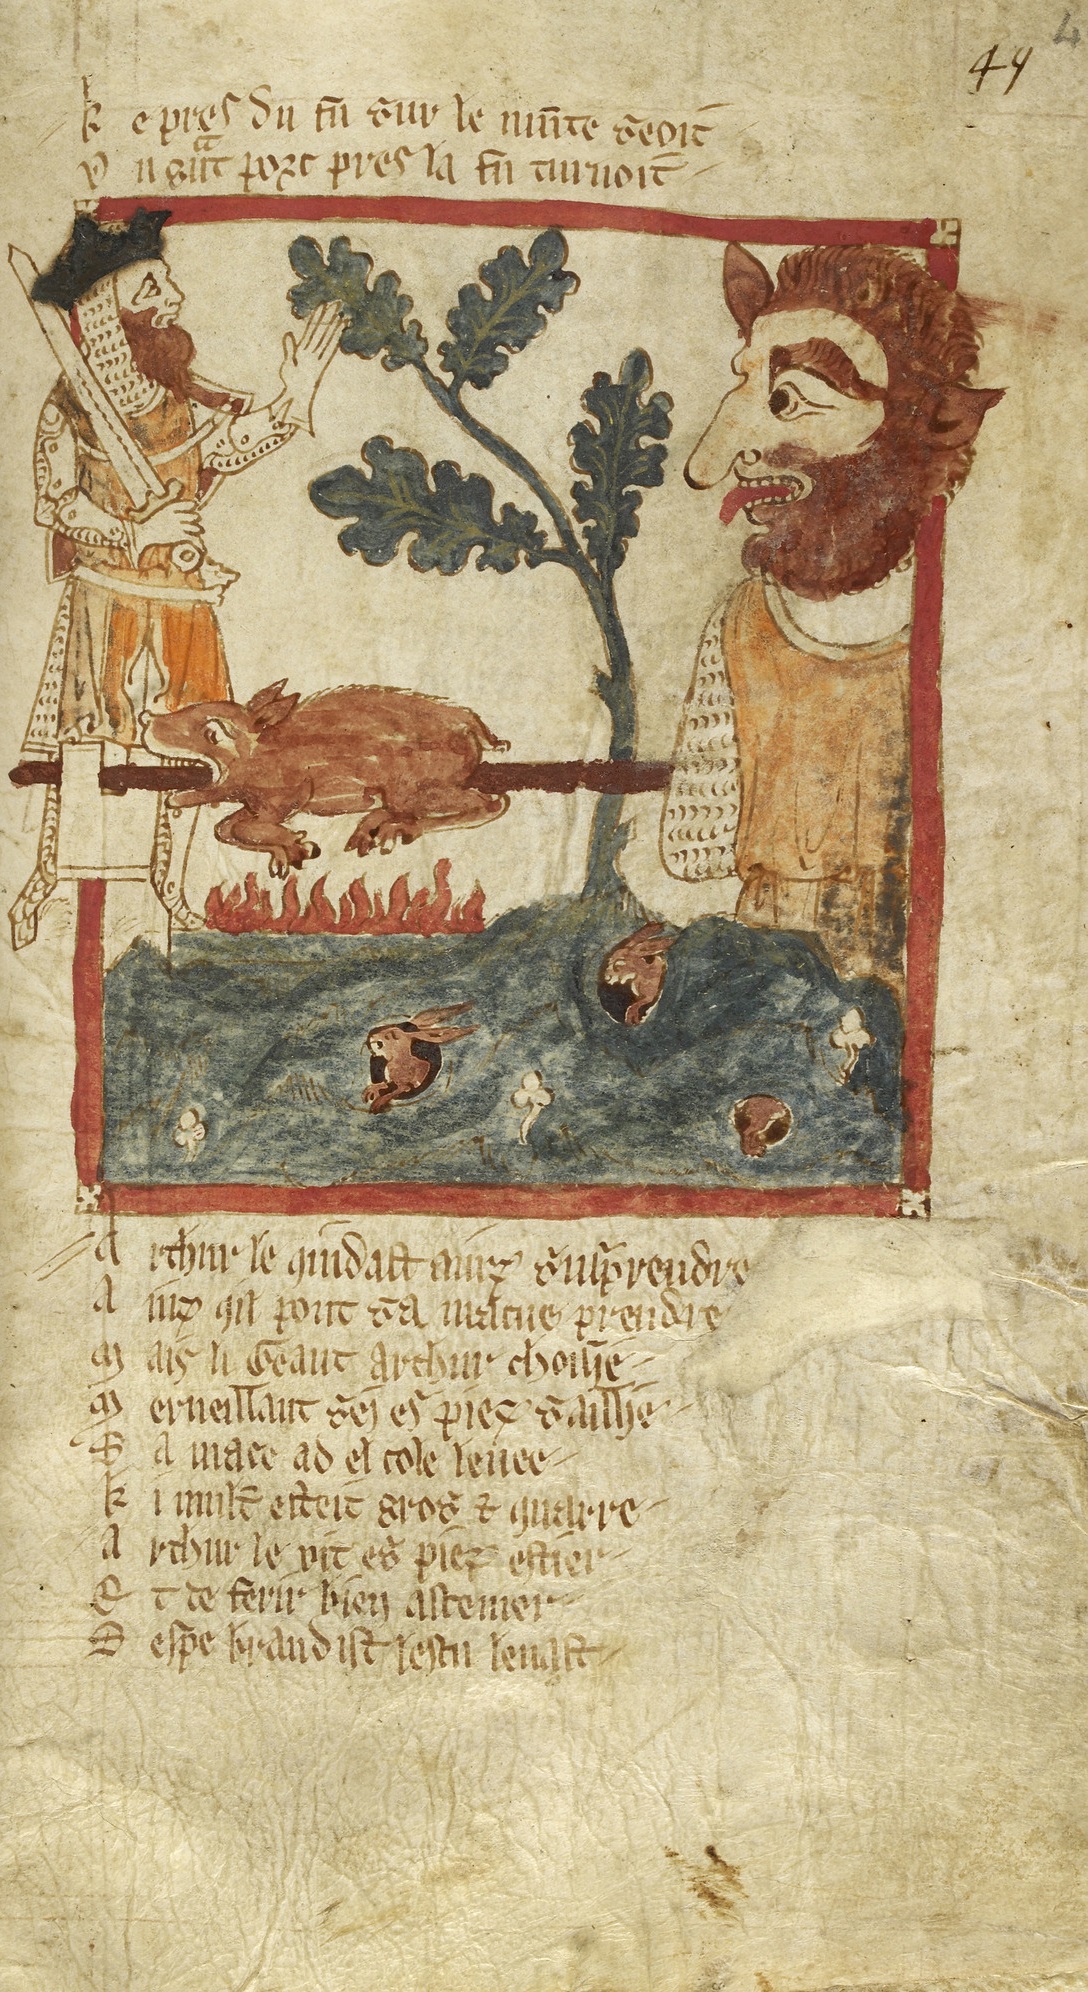 49 4
k e pres du fu sur le munte seoit
v n gant porc pres la fu turnoit
A rthur le quidast ainz surprendre
A inz qil pout sa macue prendre
M ais li Geant Arthur choisie
M erueillant sei es piez saillie
S a mace ad el cole leuee
k i mult esteit gros & quarre
A rthur le vit es piez ester
E t de ferir bien
D espe brandist lescu leuast